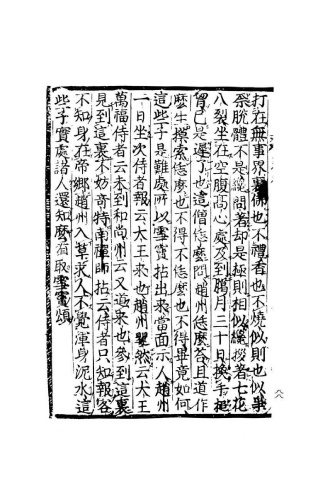 打在無事界裏佛也不禮香也不燒似則也似爭
奈脫體不是纔問著却是極則相似纔拶著七花
八裂坐在空腹高心處及到臘月三十日換手搥
胷已是遲了也這僧恁麼問趙州恁麼答且道作
麼生摸索恁麼也不得不恁麼也不得畢竟如何
這些子是難處所以雪竇拈出來當面示人趙州
一日坐次侍者報云大王來也趙州矍然云大王
萬福侍者云未到和尚州云又道來也參到這裏
見到這裏不妨奇特南禪師拈云侍者只知報客
不知身在帝鄉趙州入草求人不覺渾身泥水這
些子實處諸人還知麼看取雪竇頌